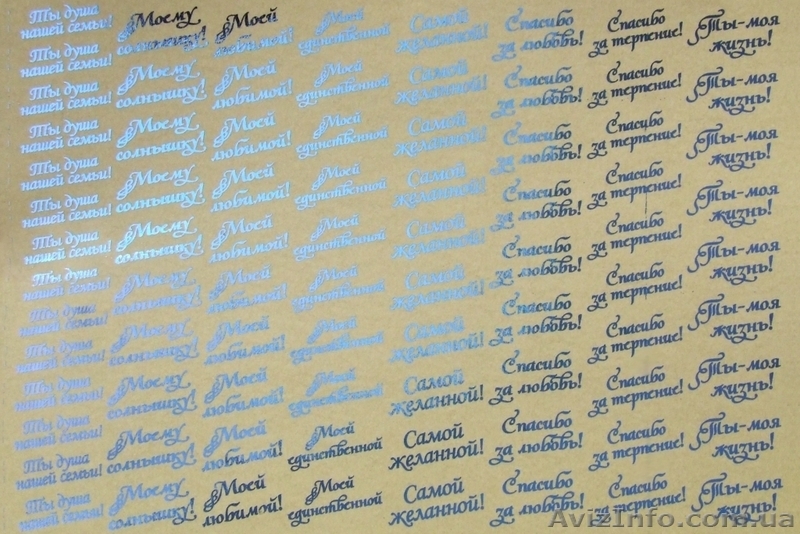 Ты душа Моему Моей Моей Самой Спасибо Спасибо Ты-моя
нашей семьи! солнышку! любимой! единственной желанной! за любовь! за терпение! жизнь!
Ты душа Моему Моей Моей Самой Спасибо Спасибо Ты-моя
нашей семьи! солнышку! любимой! единственной желанной! за любовь! за терпение! жизнь!
Ты душа Моему Моей Моей Самой Спасибо Спасибо Ты-моя
нашей семьи! солнышку! любимой! единственной желанной! за любовь! за терпение! жизнь!
Ты душа Моему Моей Моей Самой Спасибо Спасибо Ты-моя
нашей семьи! солнышку! любимой! единственной желанной! за любовь! за терпение! жизнь!
Ты душа Моему Моей Моей Самой Спасибо Спасибо Ты-моя
нашей семьи! солнышку! любимой! единственной желанной! за любовь! за терпение! жизнь!
Ты душа Моему Моей Моей Самой Спасибо Спасибо Ты-моя
нашей семьи! солнышку! любимой! единственной желанной! за любовь! за терпение! жизнь!
Ты душа Моему Моей Моей Самой Спасибо Спасибо Ты-моя
нашей семьи! солнышку! любимой! единственной желанной! за любовь! за терпение! жизнь!
Ты душа Моему Моей Моей Самой Спасибо Спасибо Ты-моя
нашей семьи! солнышку! любимой! единственной желанной! за любовь! за терпение! жизнь!
Ты душа Моему Моей Моей Самой Спасибо Спасибо Ты-моя
нашей семьи! солнышку! любимой! единственной желанной! за любовь! за терпение! жизнь!
Ты душа Моему Моей Моей Самой Спасибо
нашей семьи! солнышку! любимой! единственной желанной! за терпение!
AvizInfo.com.ua